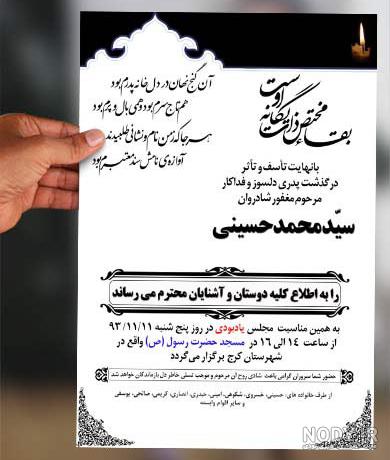 بقاء مختص ذات یگانه اوست
آن گنج نهان در دل خانه پدرم بود
هم تاج سرم بود و هم بال و پرم بود
هر جا که ز من نام و نشانی طلبیدند
آوازه‌ی نامش سند معتبرم بود
بانهایت تأسف و تأثر
درگذشت پدری دلسوز و فداکار
مرحوم مغفور شادروان
سیّد محمد حسینی
را به اطلاع کلیه دوستان و آشنایان محترم می رساند
به همین مناسبت مجلس یادبودی در روز پنج شنبه ۹۳/۱۱/۱۱
از ساعت ۱۴ الی ۱۶ در مسجد حضرت رسول (ص) واقع در
شهرستان کرج برگزار می‌گردد
حضور شما سروران گرامی باعث شادی روح آن مرحوم و موجب تسلی خاطر دل بازماندگان خواهد شد
از طرف خانواده های: حسینی، خسروی، شکوهی، امینی، حیدری، انصاری، کریمی، صالحی، یوسفی
و سایر اقوام وابسته